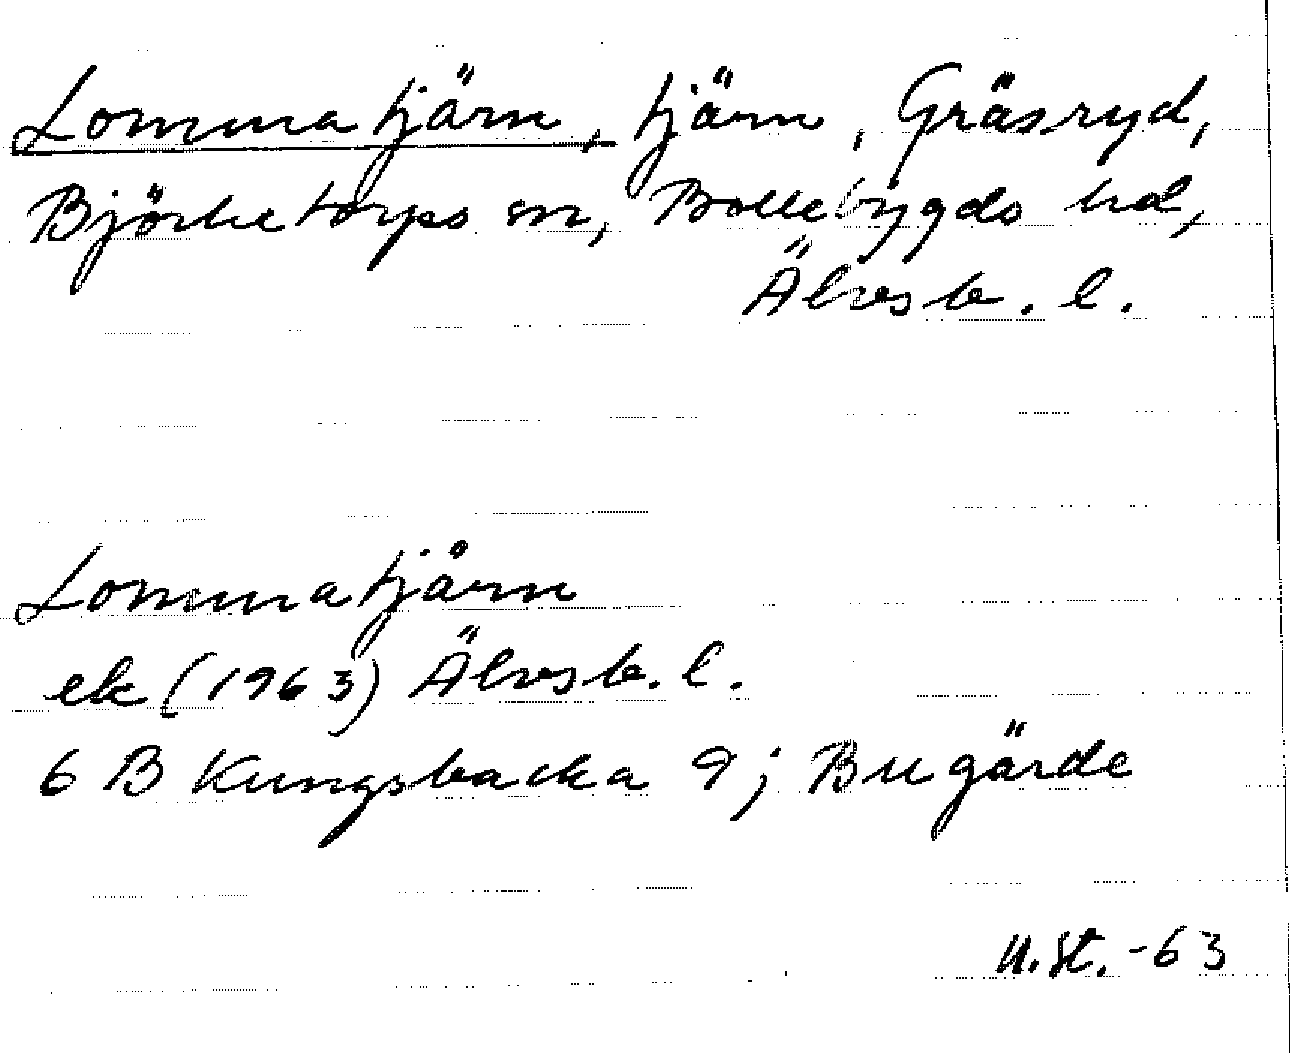 Lommatjärn, tjärn, Gräsryd,
Björketorps sn, Bollebygds hd,
Älvsb. l.
Lommatjärn
ek (1963) Älvsb. l.
6 B Kungsbacka 9j Bugärde
U.St. -63